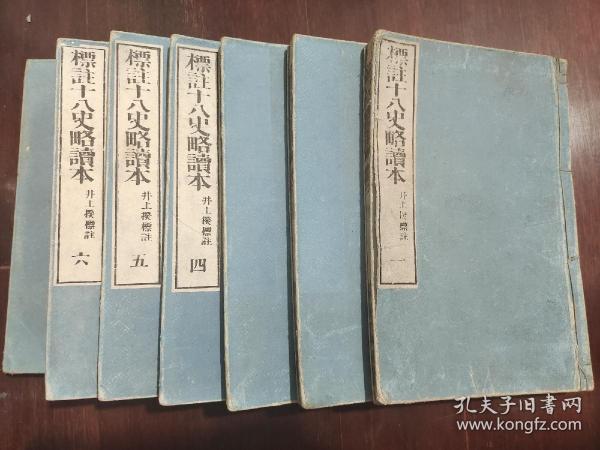 標註十八史略讀本
井上揆標註
一
標註十八史略讀本
井上揆標註
四
標註十八史略讀本
井上揆標註
五
標註十八史略讀本
井上揆標註
六
孔夫子旧书网
www.kongfz.com